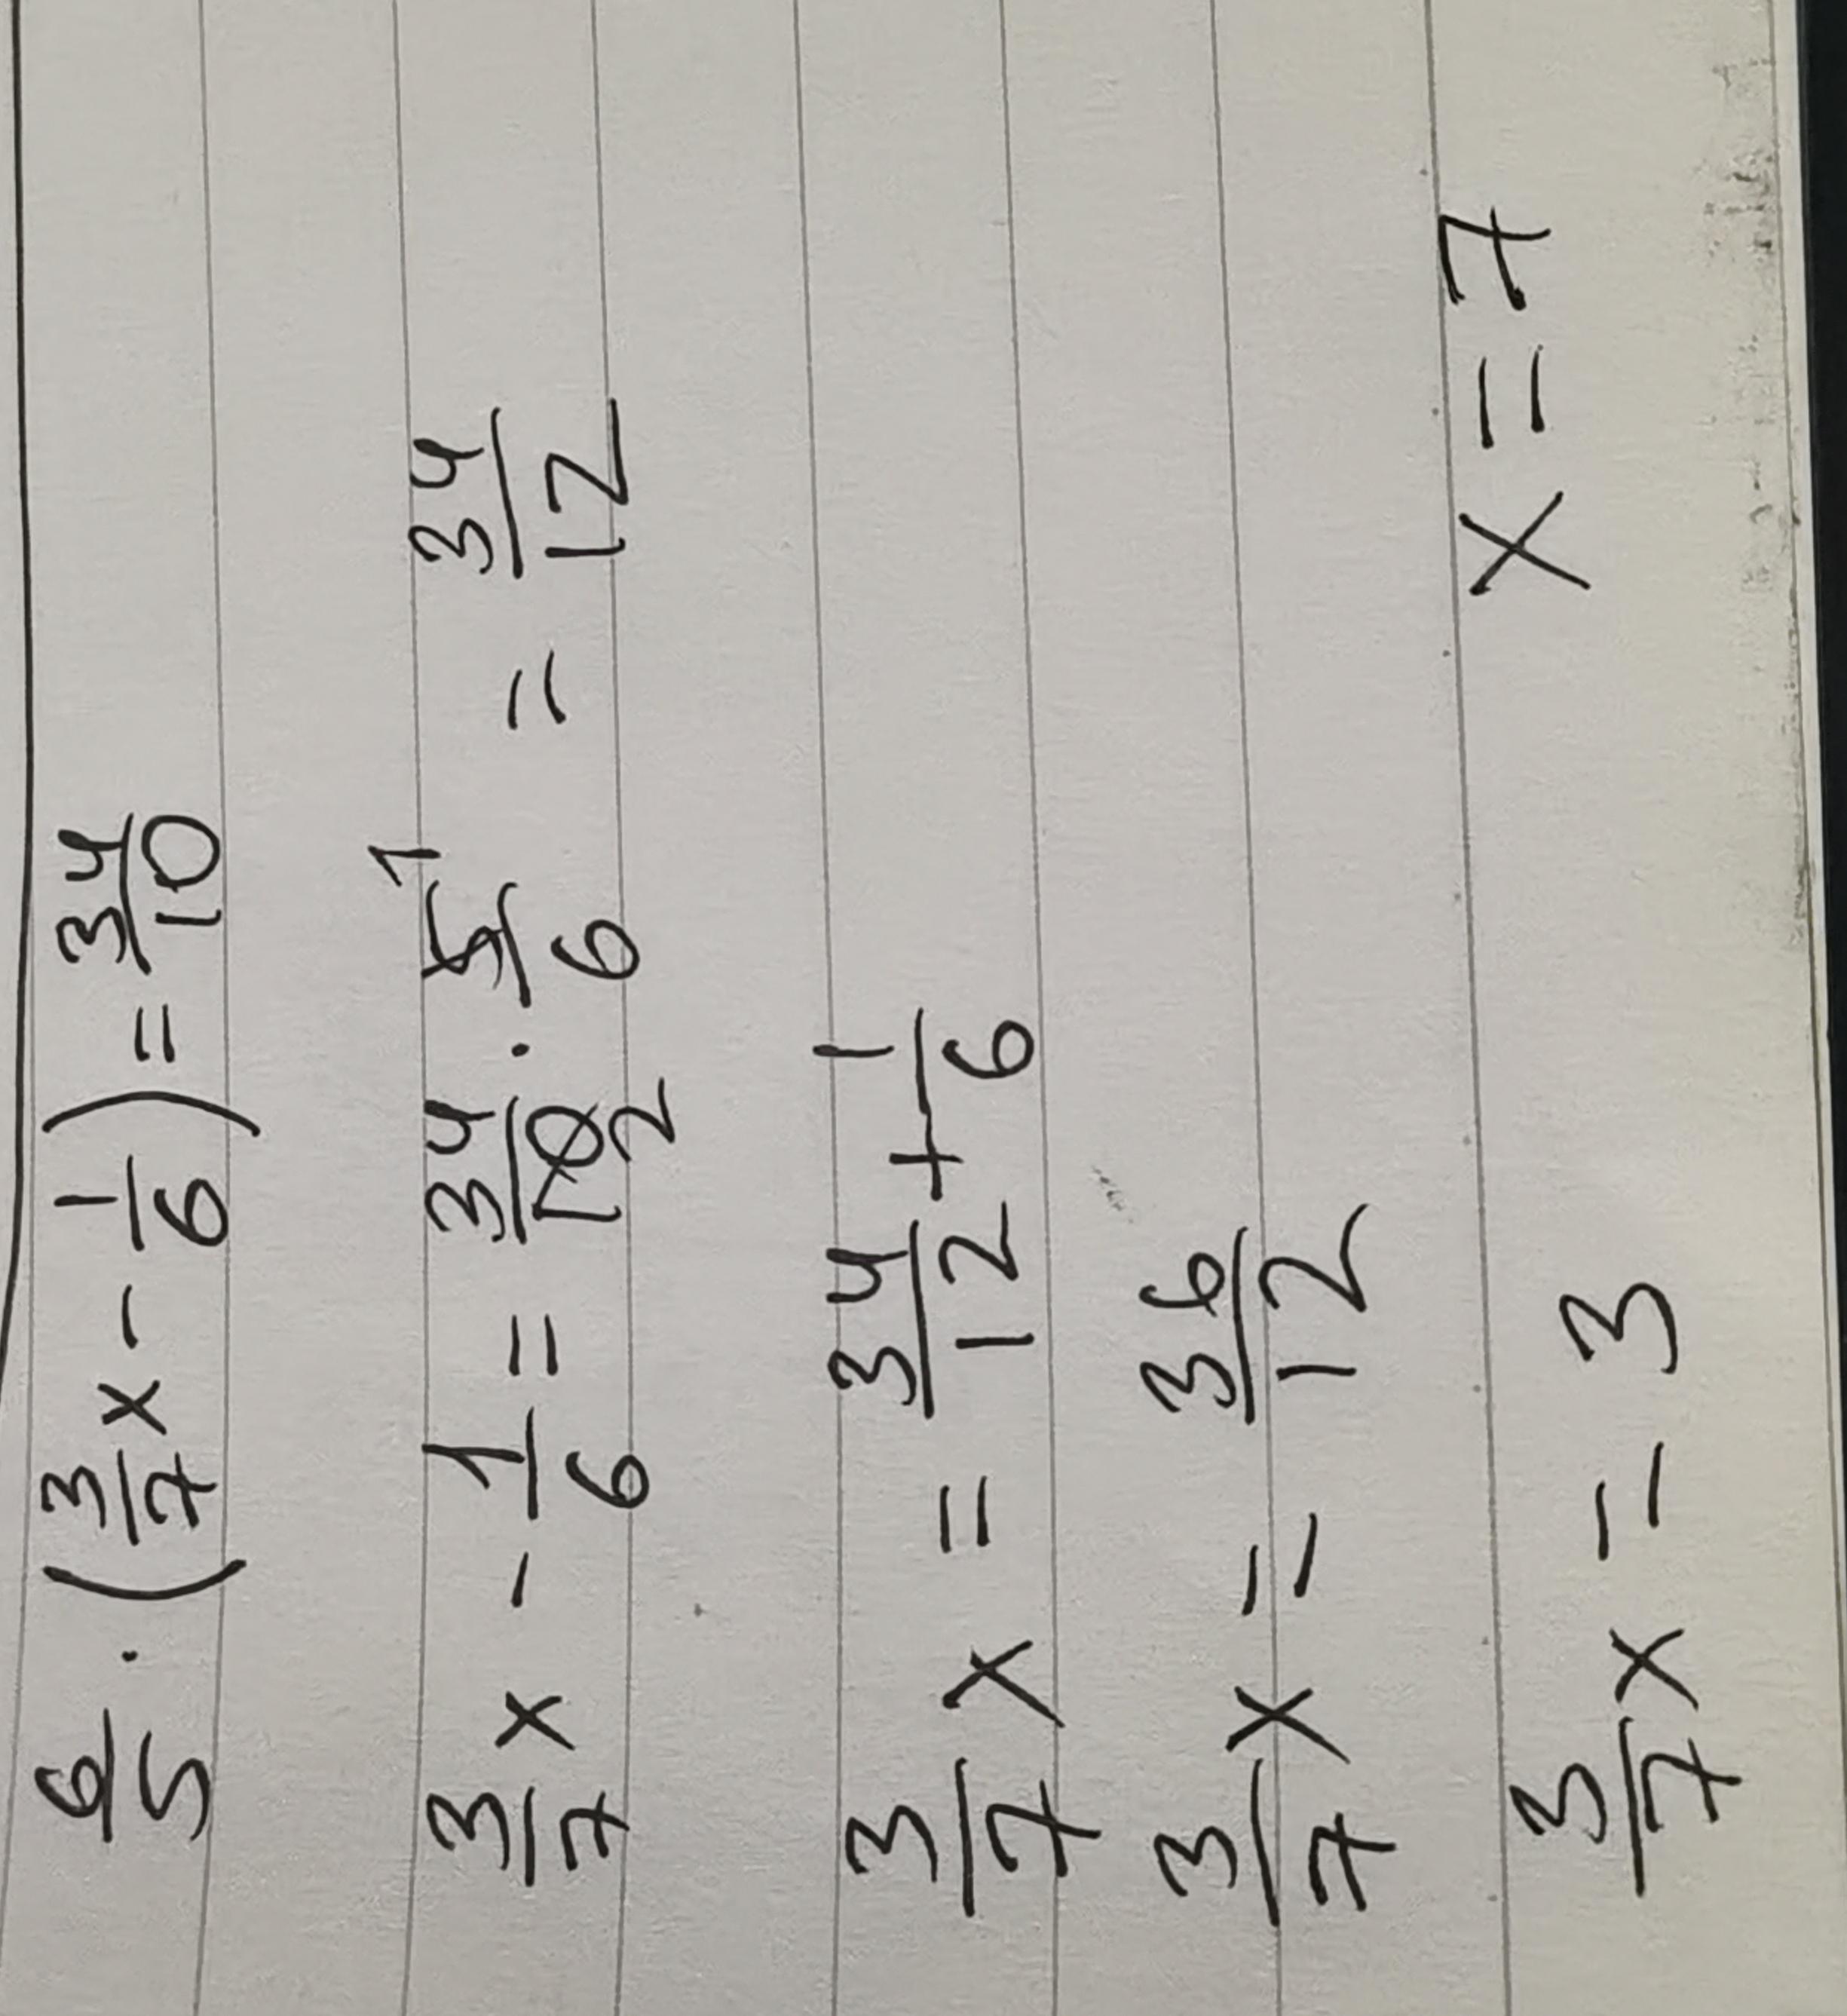 6/5 · (3/7 x - 1/6) = 34/10
3/7 x - 1/6 = 34/10 2 · 5/6 1 = 34/12
3/7 x = 34/12 + 1/6
3/7 x = 36/12
3/7 x = 3 x = 7